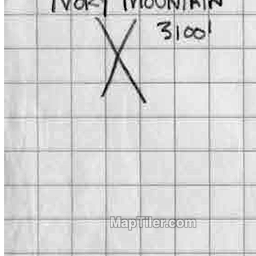 IVORY MOUNTAIN
3100'
X
MapTiler.com